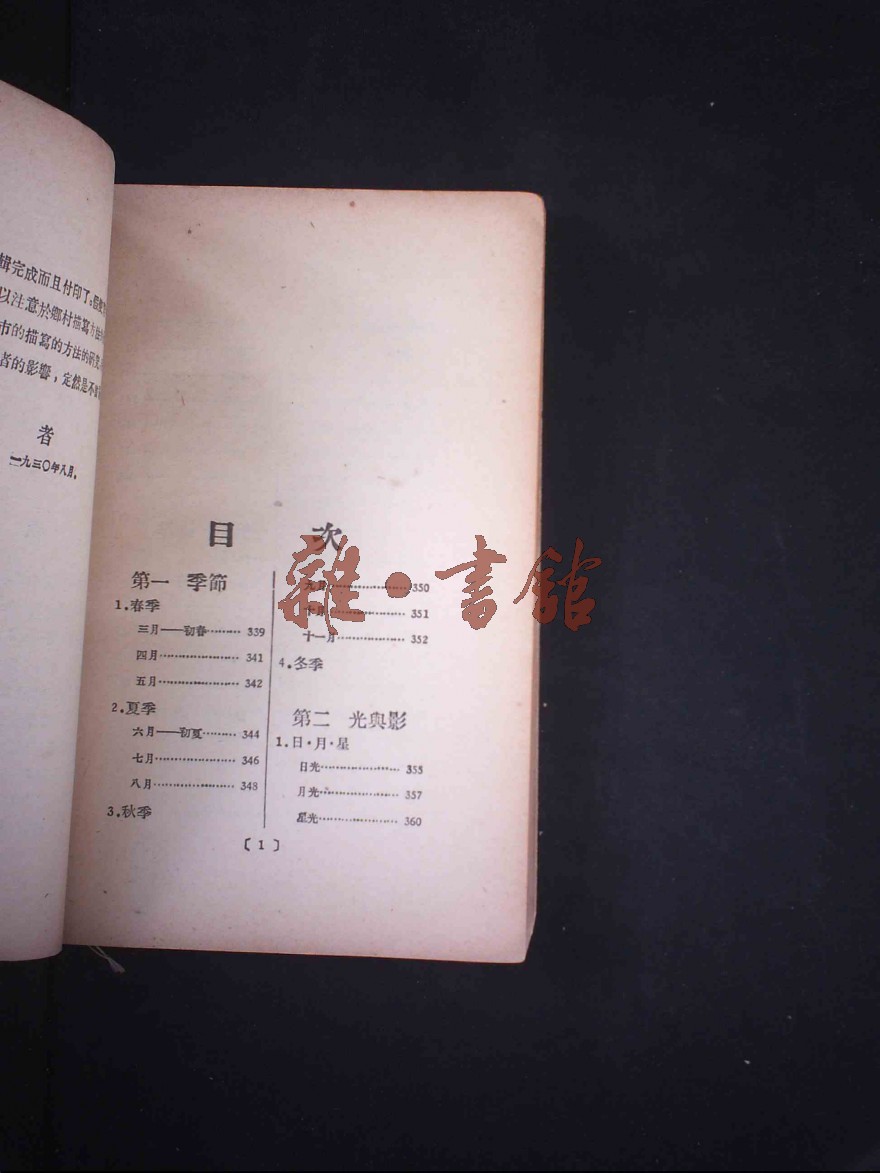 輯完成而且付印了。
以注意於鄉村描寫方法
市的描寫的方法的研究
者的影響，定然是不
者
一九三〇年八月。
目 次
第一 季節
1.春季
三月——初春………339
四月…………………341
五月…………………342
2.夏季
六月——初夏………344
七月…………………346
八月…………………348
3.秋季
九月…………………350
十月…………………351
十一月………………352
4.冬季
第二 光與影
1.日·月·星
日光…………………355
月光…………………357
星光…………………360
〔1〕
雜·書館